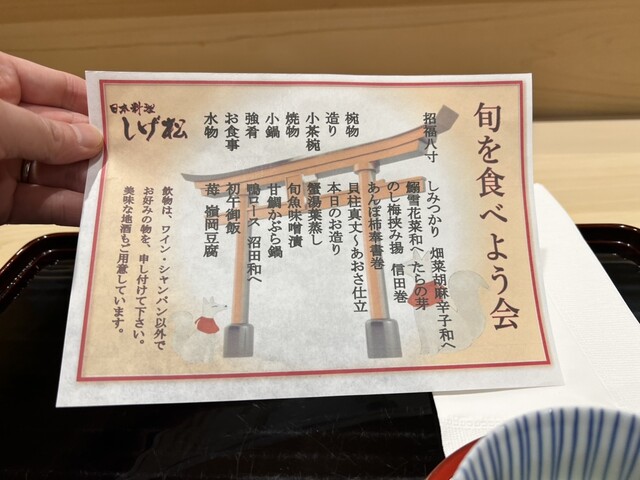 旬を食べよう会
招福八寸　しみつかり　畑菜胡麻辛子和へ
鰯雪花菜和へ　たらの芽
のし梅挟み揚　信田巻
あんぽ柿奉書巻
椀物　貝柱真丈〜あおさ仕立
造り　本日のお造り
小茶椀　蟹湯葉蒸し
焼物　旬魚味噌漬
小鍋　甘鯛かぶら鍋
強肴　鴨ロース　沼田和へ
お食事　初午御飯
水物　苺　嶺岡豆腐
飲物は、ワイン・シャンパン以外で
お好みの物を、申し付けて下さい。
美味な地酒もご用意しています。
日本料理
しげ松